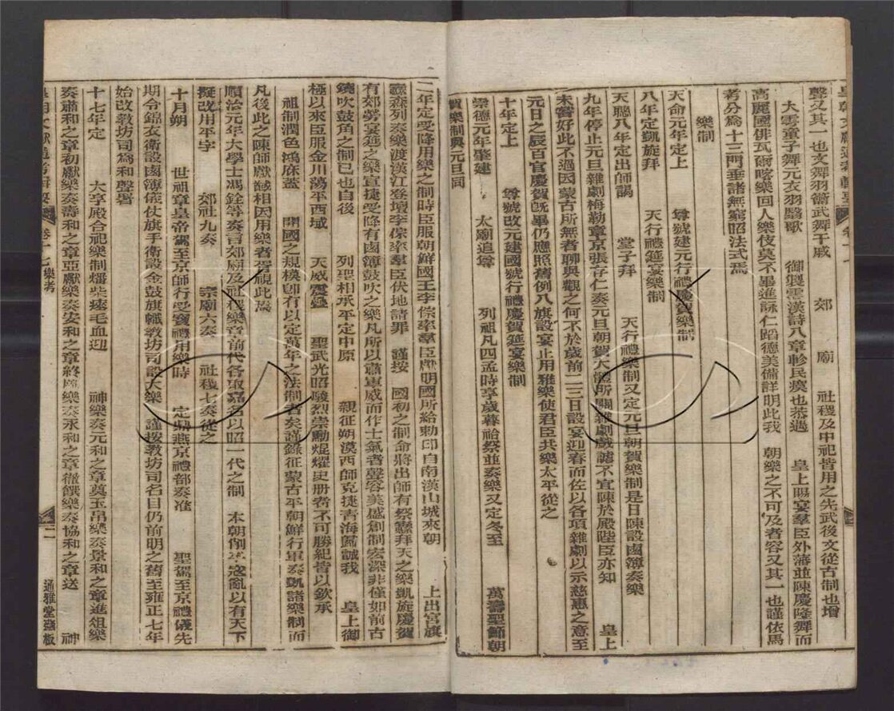 聲又其一也文舞羽籥武舞干戚　郊　廟　社稷及中祀皆用之先武後文從古制也增
大雩童子舞元衣羽翳歌　御製雲漢詩八章軫民瘼也恭遇　皇上賜宴羣臣外藩並陳慶隆舞而
高麗國俳瓦爾喀樂回人樂伎莫不畢進詠仁蹈德美備詳明此我　朝樂之不可及者容又其一也謹依馬
考分為十三門垂諸無窮昭法式焉
樂制
天命元年定上　尊號建元行禮慶賀樂制
八年定凱旋拜　天行禮筵宴樂制
天聰八年定出師謁　堂子拜　天行禮樂制又定元旦朝賀樂制是日陳設鹵簿奏樂
九年停止元旦雜劇梅勒章京張存仁奏元旦朝賀大體所關雜劇戲謔不宜陳於殿陛臣亦知　皇上
未嘗好此不過因蒙古所無者聊與觀之何不於歲前二三日設宴迎春而佐以各項雜劇以示慈惠之意至
元日之辰百官慶賀既畢仍應照舊例八旗設宴止用雅樂使君臣共樂太平從之
十年定上　尊號改元建國號行禮慶賀筵宴樂制
崇德元年肇建　太廟追尊　列祖凡四孟時享歲暮祫祭並奏樂又定冬至　萬壽聖節朝
賀樂制與元旦同
二年定受降用樂之制時臣服朝鮮國王李倧率羣臣獻明國所給勅印自南漢山城來朝　上出宮旗
纛森列奏樂渡漢江登壇李倧率羣臣伏地請罪　謹按　國初之制命將出師有祭纛拜天之樂凱旋慶賀
有郊勞宴筵之樂宣捷受降有鹵簿鼓吹之樂凡所以肅軍威而作士氣者聲容美盛創制宏深非僅如前古
鐃吹鼓角之制已也自後　列聖相承平定中原　親征朔漠西師克捷青海歸誠我　皇上御
極以來臣服金川蕩平西域　天威震疊　聖武光昭駿烈崇勳焜燿史册者不可勝紀皆以欽承
祖制潤色鴻庥蓋　開國之規模即有以定萬年之法制者矣謹錄征蒙古平朝鮮行軍奏凱諸樂制而
凡後此之陳師獻馘相因用樂者皆視此焉
順治元年大學士馮銓等奏言郊廟及社稷樂章前代各取嘉名以昭一代之制　本朝削平寇亂以有天下
擬改用平字　郊社九奏　宗廟六奏　社稷七奏從之
十月朔　世祖章皇帝駕至京師行受寶禮用樂時　定鼎燕京禮部奏准　聖駕至京禮儀先
期令錦衣衛設鹵簿儀仗旗手衛設金鼓旗幟教坊司設大樂　謹按教坊司名目仍前明之舊至雍正七年
始改教坊司為和聲署
十七年定　大享殿合祀樂制燔柴瘞毛血迎　神樂奏元和之章奠玉帛樂奏景和之章進俎樂
奏肅和之章初獻樂奏壽和之章亞獻樂奏安和之章終獻樂奏永和之章徹饌樂奏協和之章送　神
卷十七樂考
二
通雅堂石板